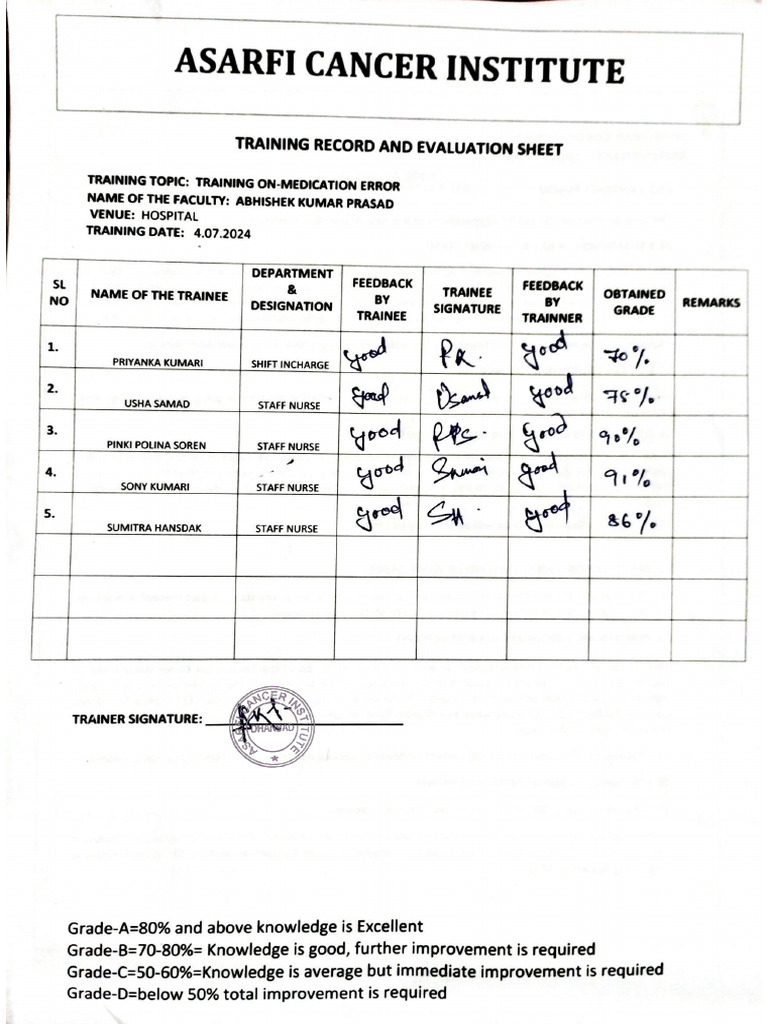 ASARFI CANCER INSTITUTE
TRAINING RECORD AND EVALUATION SHEET
TRAINING TOPIC: TRAINING ON-MEDICATION ERROR
NAME OF THE FACULTY: ABHISHEK KUMAR PRASAD
VENUE: HOSPITAL
TRAINING DATE: 4.07.2024
SL NO NAME OF THE TRAINEE DEPARTMENT & DESIGNATION FEEDBACK BY TRAINEE TRAINEE SIGNATURE FEEDBACK BY TRAINNER OBTAINED GRADE REMARKS
1. PRIYANKA KUMARI SHIFT INCHARGE good PK. good 70%
2. USHA SAMAD STAFF NURSE good good 78%
3. PINKI POLINA SOREN STAFF NURSE good PPS. good 90%
4. SONY KUMARI STAFF NURSE good good 91%
5. SUMITRA HANSDAK STAFF NURSE good SH. good 86%
TRAINER SIGNATURE:
ASARFI CANCER INSTITUTE
DHANBAD
Grade-A=80% and above knowledge is Excellent
Grade-B=70-80%= Knowledge is good, further improvement is required
Grade-C=50-60%=Knowledge is average but immediate improvement is required
Grade-D=below 50% total improvement is required